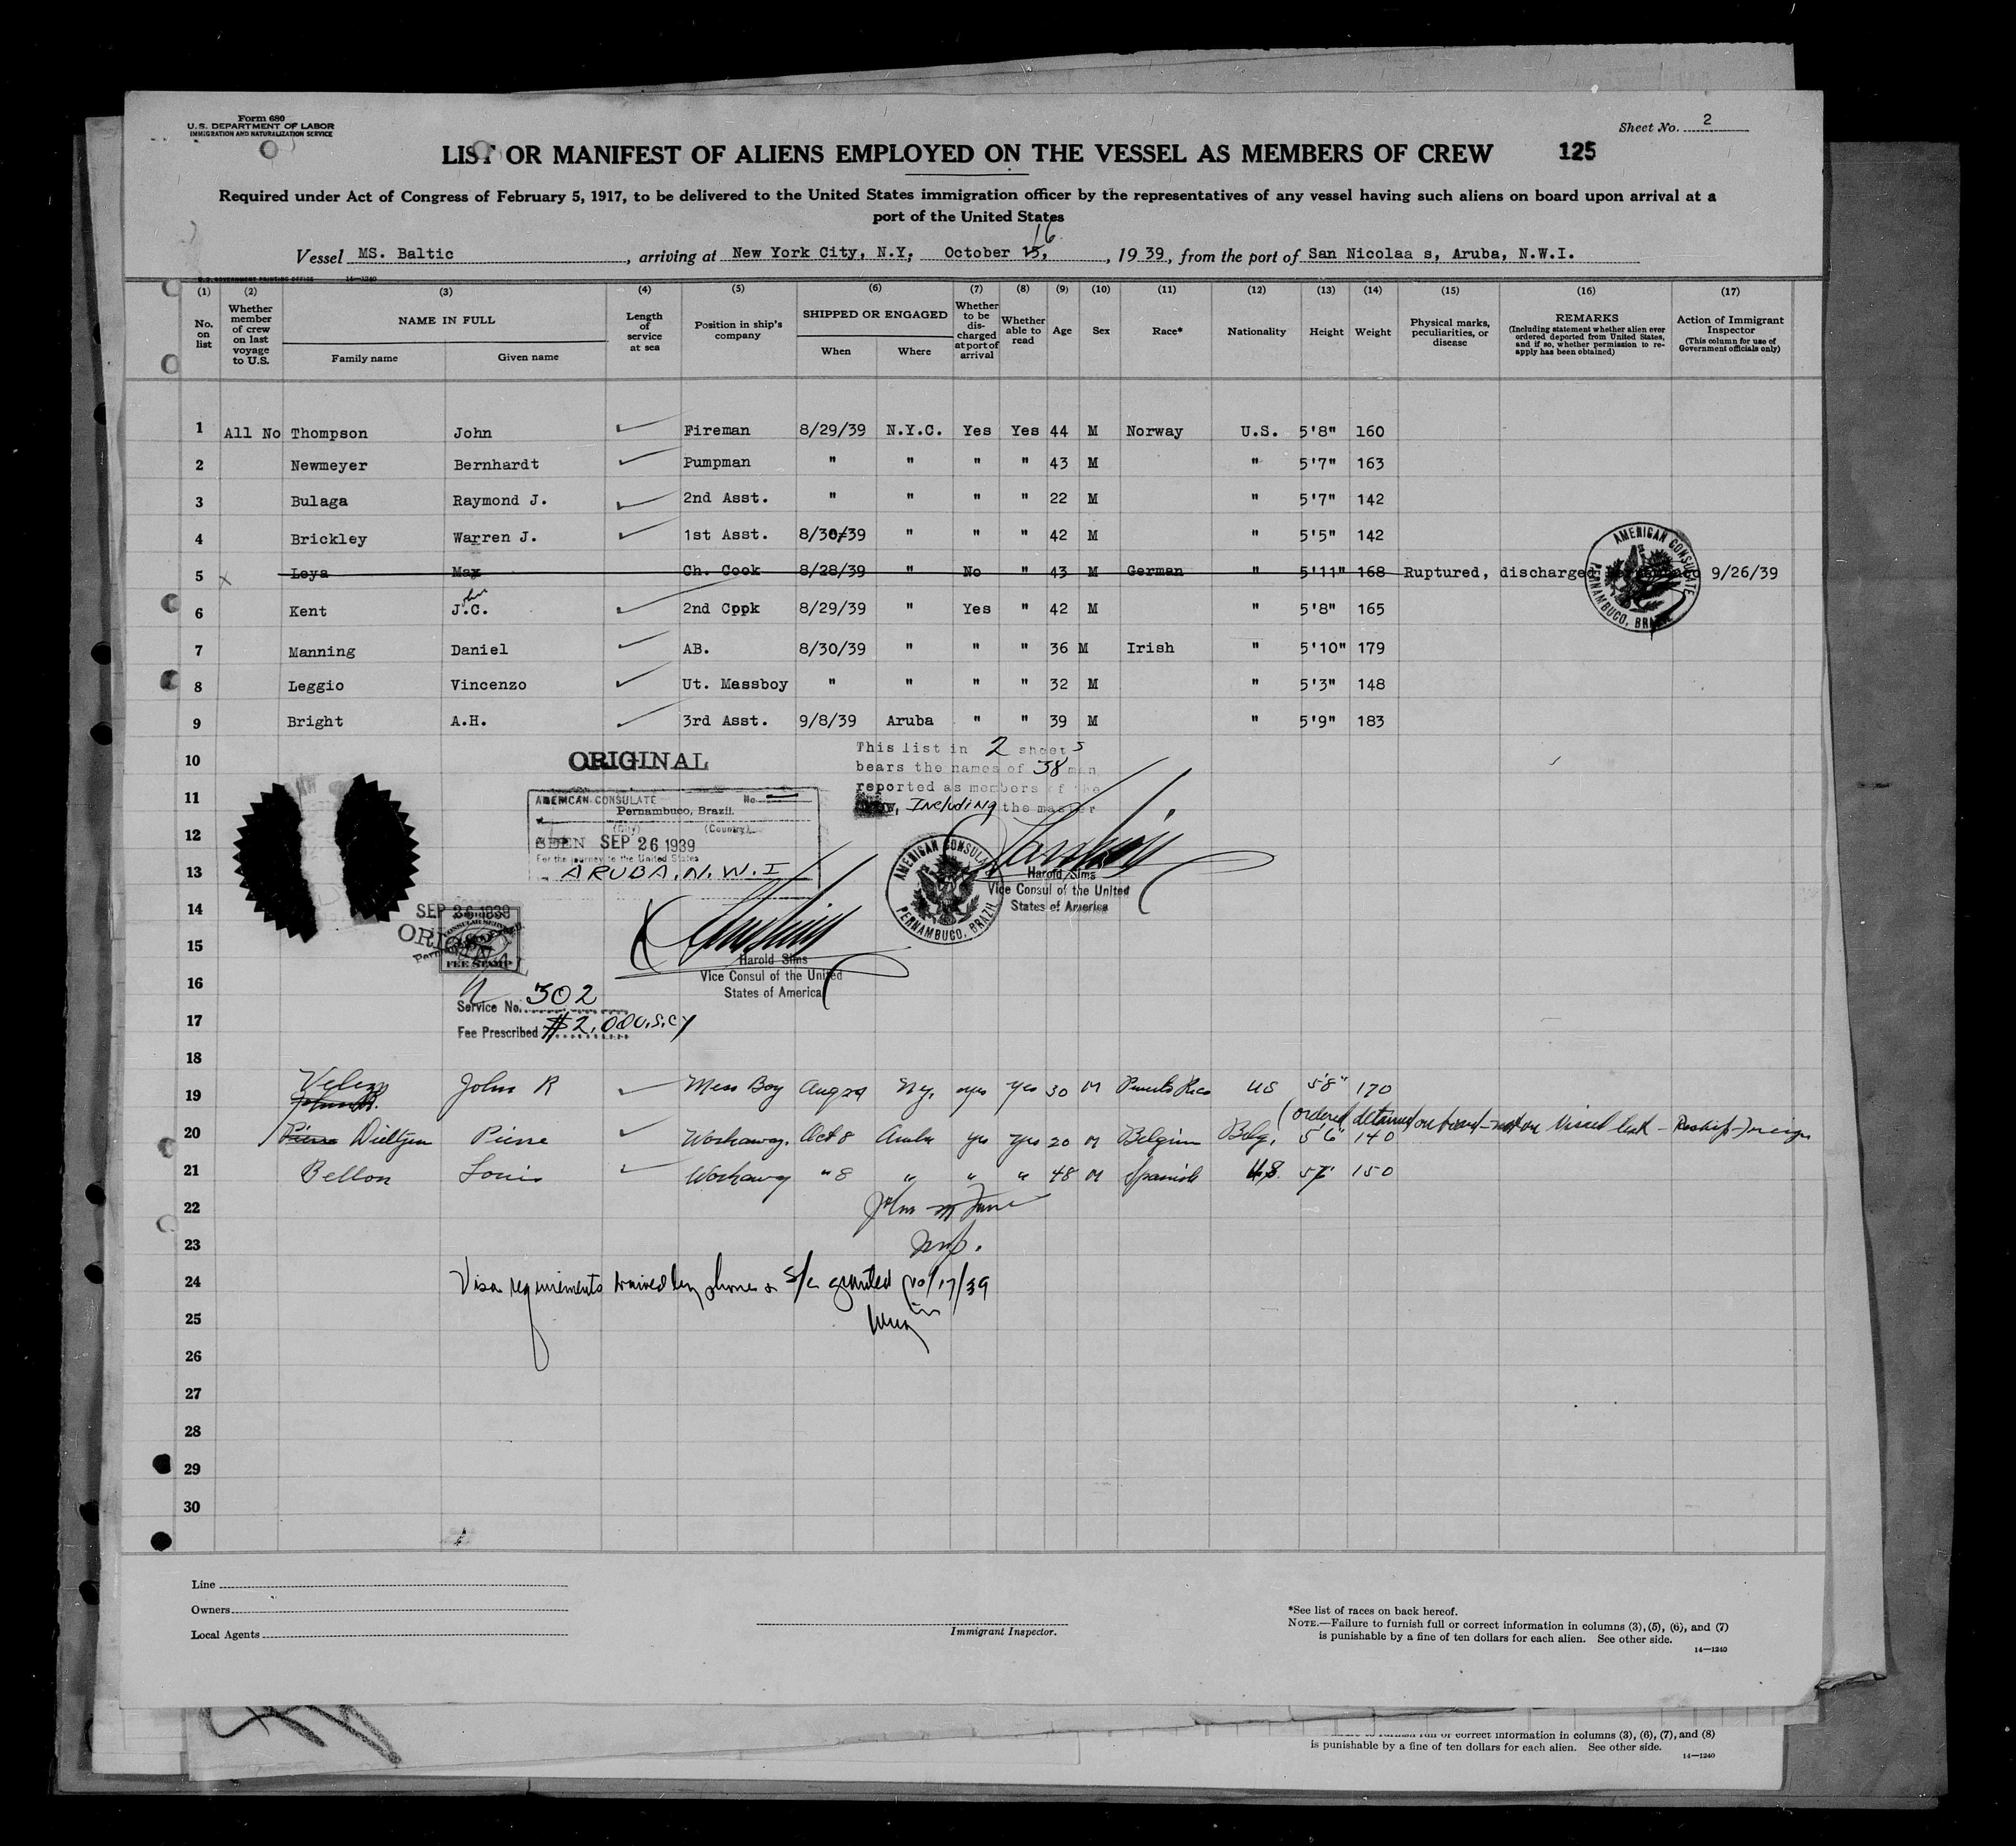 Form 680
U. S. DEPARTMENT OF LABOR
IMMIGRATION AND NATURALIZATION SERVICE
Sheet No. 2
LIST OR MANIFEST OF ALIENS EMPLOYED ON THE VESSEL AS MEMBERS OF CREW 125
Required under Act of Congress of February 5, 1917, to be delivered to the United States immigration officer by the representatives of any vessel having such aliens on board upon arrival at a
port of the United States
16
Vessel MS. Baltic, arriving at New York City, N.Y, October 15, , 19 39, from the port of San Nicolaa s, Aruba, N.W.I.
U.S. GOVERNMENT PRINTING OFFICE 14—1240
(1) (2) (3) (4) (5) (6) (7) (8) (9) (10) (11) (12) (13) (14) (15) (16) (17)
No. on list
Whether member of crew on last voyage to U.S.
NAME IN FULL
Family name
Given name
Length of service at sea
Position in ship's company
SHIPPED OR ENGAGED
When
Where
Whether to be discharged at port of arrival
Whether able to read
Age
Sex
Race*
Nationality
Height
Weight
Physical marks, peculiarities, or disease
REMARKS
(Including statement whether alien ever ordered deported from United States, and if so, whether permission to reapply has been obtained)
Action of Immigrant Inspector
(This column for use of Government officials only)
1 All No Thompson John Fireman 8/29/39 N.Y.C. Yes Yes 44 M Norway U.S. 5'8" 160
2 Newmeyer Bernhardt Pumpman " " " " 43 M " 5'7" 163
3 Bulaga Raymond J. 2nd Asst. " " " " 22 M " 5'7" 142
4 Brickley Warren J. 1st Asst. 8/30/39 " " " 42 M " 5'5" 142
5 x Leya Max Ch. Cook 8/28/39 " No " 43 M German " 5'11" 168 Ruptured, discharged 9/26/39
6 Kent J.C. John 2nd Cppk 8/29/39 " Yes " 42 M " 5'8" 165
7 Manning Daniel AB. 8/30/39 " " " 36 M Irish " 5'10" 179
8 Leggio Vincenzo Ut. Massboy " " " " 32 M " 5'3" 148
9 Bright A.H. 3rd Asst. 9/8/39 Aruba " " 39 M " 5'9" 183
AMERICAN CONSULATE
PERNAMBUCO, BRAZIL
10
ORIGINAL
This list in 2 sheets
bears the names of 38 men
reported as members of the
Including the master
11
AMERICAN CONSULATE No.
Pernambuco, Brazil.
(City) (Country)
12
SEEN SEP 26 1939
For the journey to the United States
13
ARUBA, N.W.I
AMERICAN CONSULATE
PERNAMBUCO, BRAZIL
Harold Sims
Vice Consul of the United
States of America
14
SEP 26 1939
ORIGINAL
FEE STAMP
15
Harold Sims
Vice Consul of the United
States of America
16
Service No. 302
17
Fee Prescribed $2.00 U.S.CY
18
19 Velez John R. John R Mess Boy Aug 29 NY, yes yes 30 M Puerto Rico US 5'8" 170
(ordered detained on board - not on Visaed list - Reship Foreign
20 Pierre Dieltjen Pierre Workaway. Oct 8 Aruba yes yes 20 M Belgium Belg. 5'6" 140
21 Bellon Louis Workaway " 8 " " " 48 M Spanish U.S. 5'7" 150
22
23
24 Visa requirements waived by phone & S/L granted 10/17/39
25
26
27
28
29
30
Line
Owners
Local Agents
Immigrant Inspector.
*See list of races on back hereof.
NOTE.—Failure to furnish full or correct information in columns (3), (5), (6), and (7)
is punishable by a fine of ten dollars for each alien. See other side.
14—1240
or correct information in columns (3), (6), (7), and (8)
is punishable by a fine of ten dollars for each alien. See other side.
14—1240